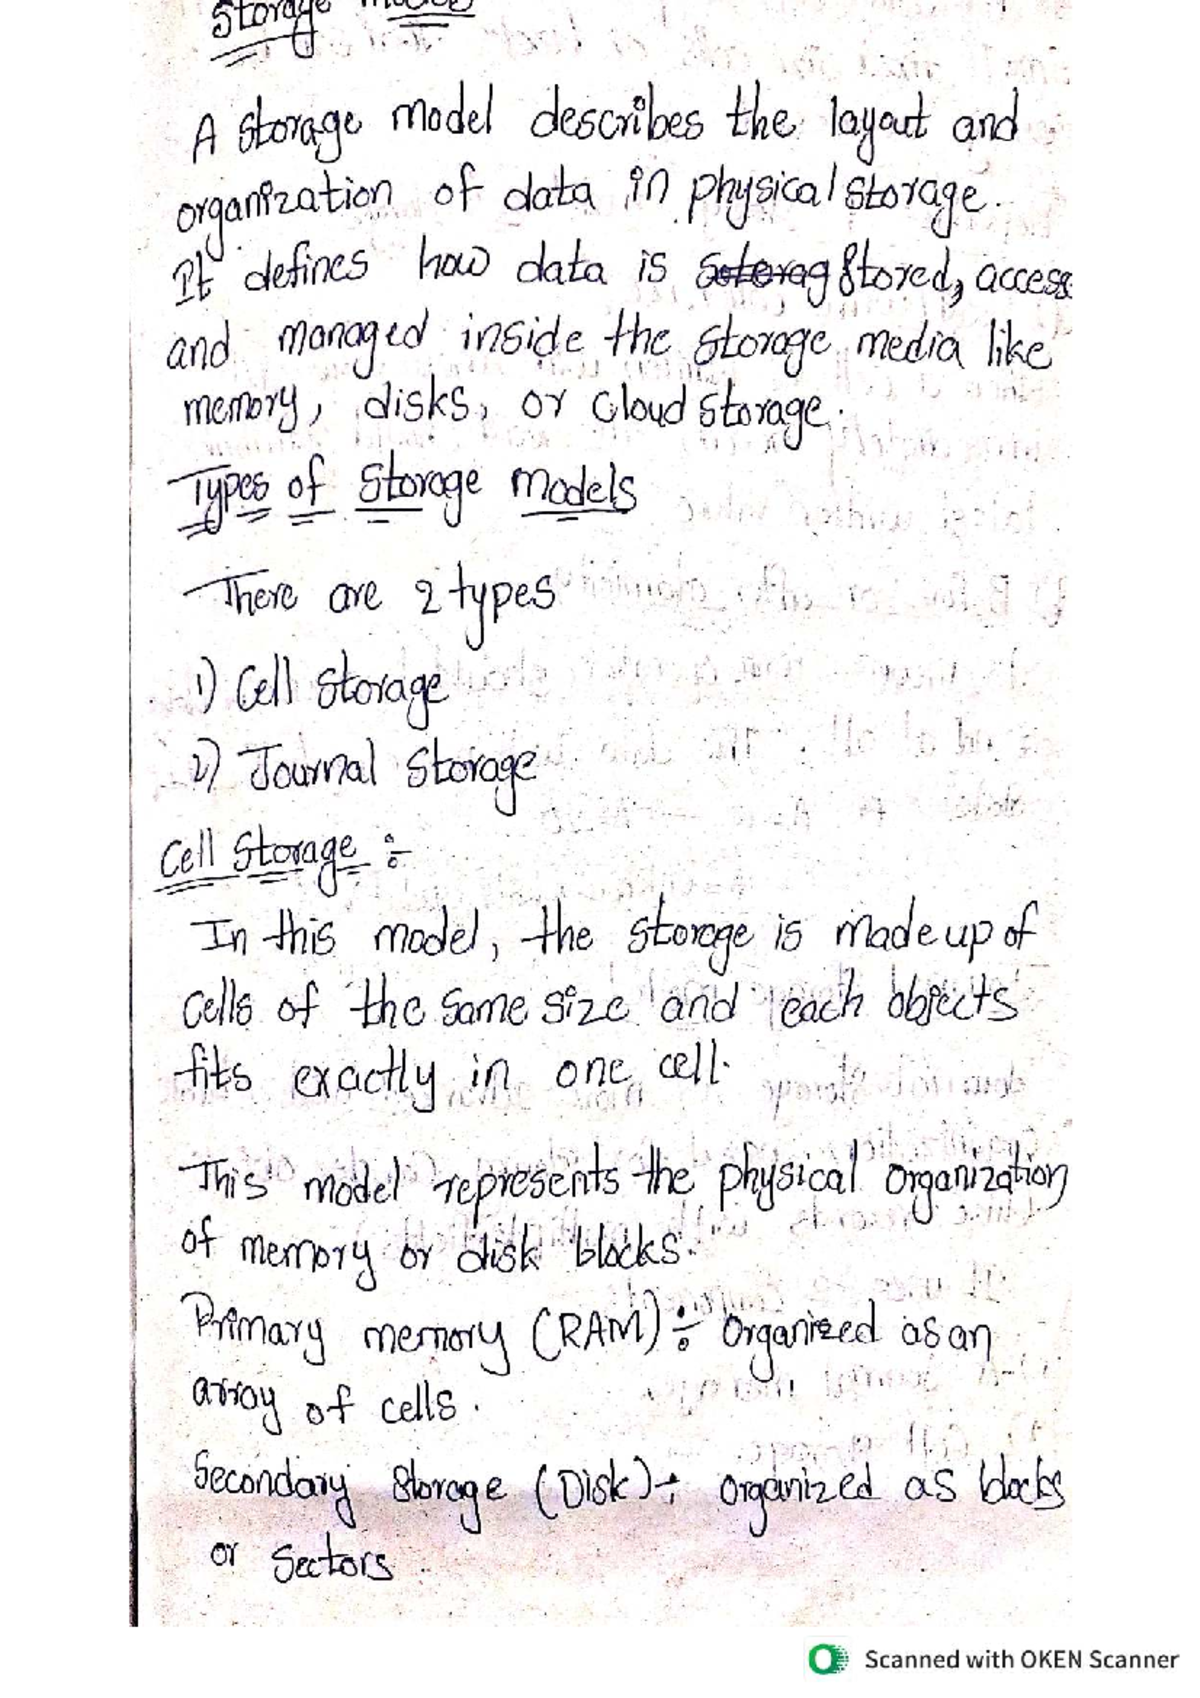 Storage models
A storage model describes the layout and
organization of data in physical storage.
It defines how data is Stored, access
and managed inside the storage media like
memory, disks, or cloud storage.
Types of Storage Models
There are 2 types
1) Cell Storage
2) Journal Storage
Cell Storage :-
In this model, the storage is made up of
cells of the same size and each objects
fits exactly in one cell.
This model represents the physical organization
of memory or disk blocks.
Primary memory (RAM) :- Organized as an
array of cells.
Secondary Storage (Disk) :- organized as blocks
or Sectors
Scanned with OKEN Scanner